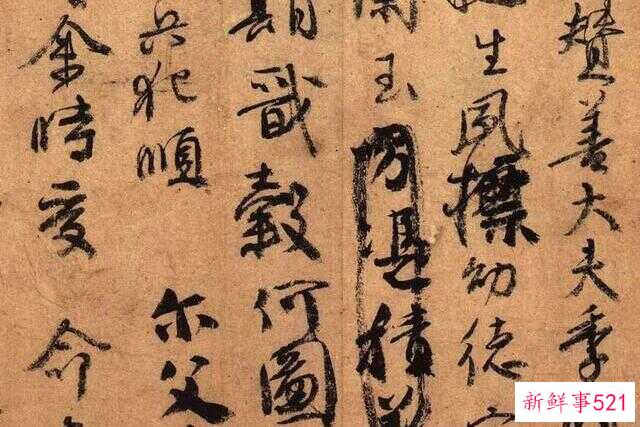 贊善大夫季
生夙標幼德
蘭玉方憑積善
期戩穀何圖
兵犯順尔父
余時受命
新鲜事521